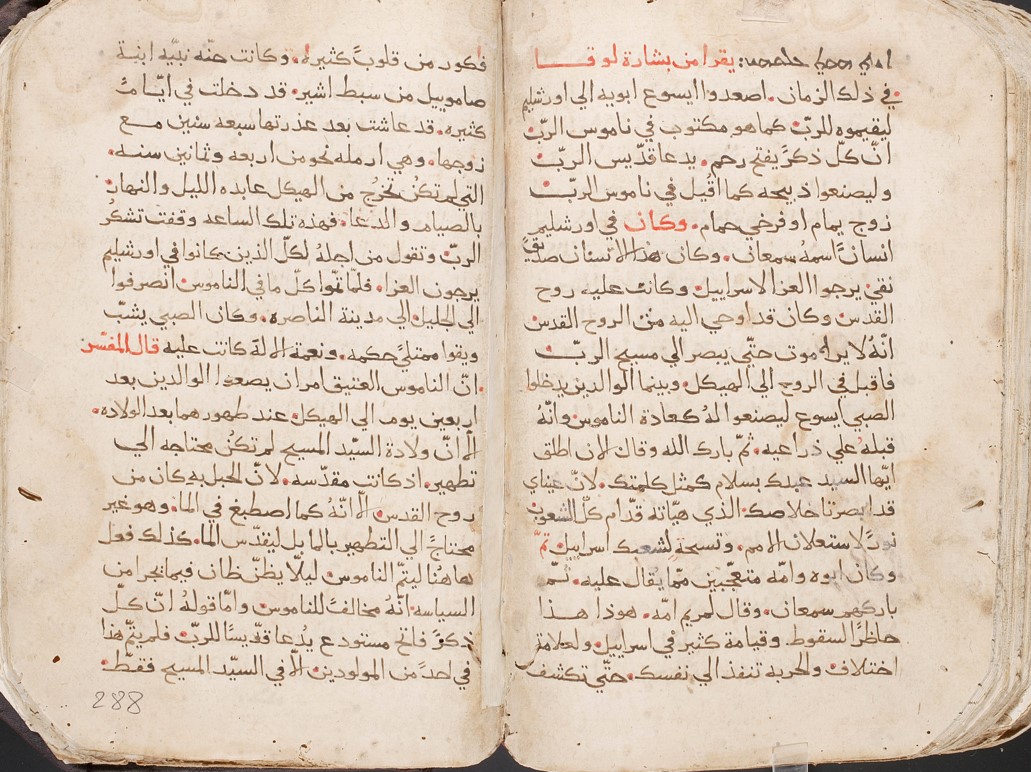 يقرا من بشارة لوقا
في ذلك الزمان. اصعدوا ايسوع ابويه الي اورشليم
ليقيموه للربّ كما هو مكتوب في ناموس الربّ
انّ كلّ ذكرً يفتح رحم. يدعا قدّيس الربّ
وليصنعوا ذبيحه كما اقُيل في ناموس الربّ
زوج يمام او فرخي حمام. وكان في اورشليم
انسانًا اسمهُ سمعان. وكان هذا الانسان صديق
نقي يرجوا العزا لاسراييل وكانت عليه روح
القدس وكان قد اوحي اليه من الروح القدس
انّهُ لا يرا موت حتّي يبصر الي مسيح الربّ
فاقبل في الروح الي الهيكل. وبينما الوالدين يدخلوا
الصبي ايسوع ليصنعوا لهُ كعادة الناموس وانّهُ
قبلهُ علي ذراعيه. ثمّ بارك الله وقال الان اطلق
ايّها السيد عبدك بسلام كمثل كلمتك. لانّ عيناي
قد ابصرتا خلاصك الذي هيّاته قدّام كلّ الشعوب
نورًا لاستعلان الامم. وتسبحة لشعبك اسراييل ثمّ
وكان ابوه وامّه متعجّبين ممّا يُقال عليه. ثمّ
باركهم سمعان. وقال لمريم امّه. هوذا هذا
حاظرًا لسقوط وقيامة كثير في اسراييل ولعلامة
اختلاف والحربة تنفذ الي نفسك. حتّي تكشف
فكور من قلوبً كثيره. وكانت حنّه نبيّه ابنة
صاموييل من سبط اشير. قد دخلت في ايّام
كثيره. قد عاشت بعد عذرتها سبعه سنين مع
زوجها. وهي ارمله نحو من اربعه وثمانين سنه.
التي لم تكنُ تخرُج من الهيكل عابده الليل والنهار
بالصيام والدعا. فهذه تلك الساعه وقفت تشكرُ
الربّ وتقول من اجلهُ لكلّ الذين كانوا في اورشليم
يرجون العزا. فلمّا تمّوا كلّ ما في الناموس انصرفوا
الي الجليل الي مدينة الناصره. وكان الصبي يشبّ
ويقوا ممتليً حكمه. ونعمة الالهُ كانت عليه قال المفسّر
انّ الناموس العتيق امر ان يصعدوا الوالدين بعد
اربعين يوم الي الهيكل عند طهورهما بعد الولاده.
الا انّ ولادة السيّد المسيح لم تكنُ محتاجه الي
تطهير. اذ كانت مقدّسه. لانّ الحبل به كان من
روح القدس الا انّهُ كما اصطبغ في الما. وهو غير
محتاجً الي التطهير بالما بل ليقدّس الما. كذلك فعل
هاهنا ليتمّ الناموس ليلّا يظنّ ظان فيما يجرا من
السياسه انّهُ مخالفً للناموس وامّا قولهُ انّ كلّ
ذكرً فاتح مستودع يُدعا قدّيسًا للربّ فلم يتمّ هذا
في احدً من المولودين الا في السيّد المسيح فقط
288